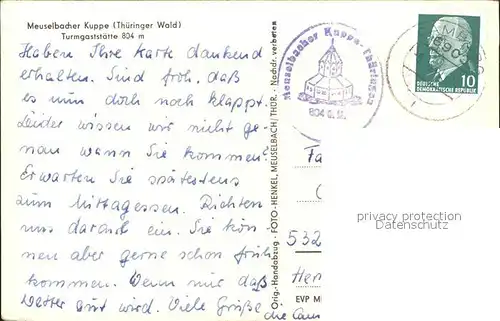 Meuselbacher Kuppe (Thüringer Wald)
Turmgaststätte 804 m
Haben Ihre Karte dankend
erhalten. Sind froh, daß
es nun doch noch klappt.
Leider wissen wir nicht ge-
nau wann Sie kommen?
Erwarten Sie spätestens
zum Mittagessen. Richten
uns danach ein. Sie kön-
nen aber gerne schon früh
kommen. Wenn nur das
Wetter gut wird. Viele Grüße
die
Orig.-Handabzug - FOTO-HENKEL, MEUSELBACH/THÜR. - Nachdr. verboten
Meuselbacher Kuppe
804 ü. M.
DEUTSCHE
DEMOKRATISCHE REPUBLIK
10
privacy protection
Datenschutz
532
EVP M